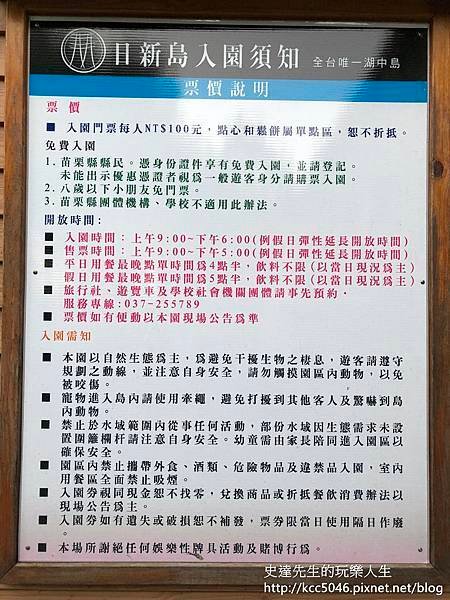 日新島入園須知 全台唯一湖中島
票價說明
票 價
■ 入園門票每人NT$100元，點心和鬆餅屬單點區，恕不折抵。
免費入園
1.苗栗縣縣民。憑身份證件享有免費入園，並請登記。
未能出示優惠憑證者視為一般遊客身分請購票入園。
2.八歲以下小朋友免門票。
3.苗栗縣團體機構、學校不適用此辦法。
開放時間:
■ 入園時間：上午9:00~下午6:00(例假日彈性延長開放時間)
■ 售票時間：上午9:00~下午5:00(例假日彈性延長開放時間)
■ 平日用餐最晚點單時間為4點半，飲料不限(以當日現況為主)
假日用餐最晚點單時間為5點半，飲料不限(以當日現況為主)
■ 旅行社、遊覽車及學校社會機關團體請事先預約．
服務專線:037-255789
■ 票價如有便動以本園現場公告為準
入園需知
■ 本園以自然生態為主，為避免干擾生物之棲息，遊客請遵守
規劃之動線，並注意自身安全，請勿觸摸園區內動物，以免
被咬傷。
■ 寵物進入島內請使用牽繩，避免打擾到其他客人及驚嚇到島
內動物。
■ 禁止於水域範圍內從事任何活動，部份水域因生態需求未設
置圍籬欄杆請注意自身安全。幼童需由家長陪同進入園區以
確保安全。
■ 園區內禁止攜帶外食、酒類、危險物品及違禁品入園，室內
用餐區全面禁止吸煙。
■ 入園券視同現金恕不找零，兌換商品或折抵餐飲消費辦法以
現場公告為主。
■ 入園券如有遺失或破損恕不補發，票券限當日使用隔日作廢
。
■ 本場所謝絕任何娛樂性牌具活動及賭博行為。
史達先生的玩樂人生
http://kcc5046.pixnet.net/blog